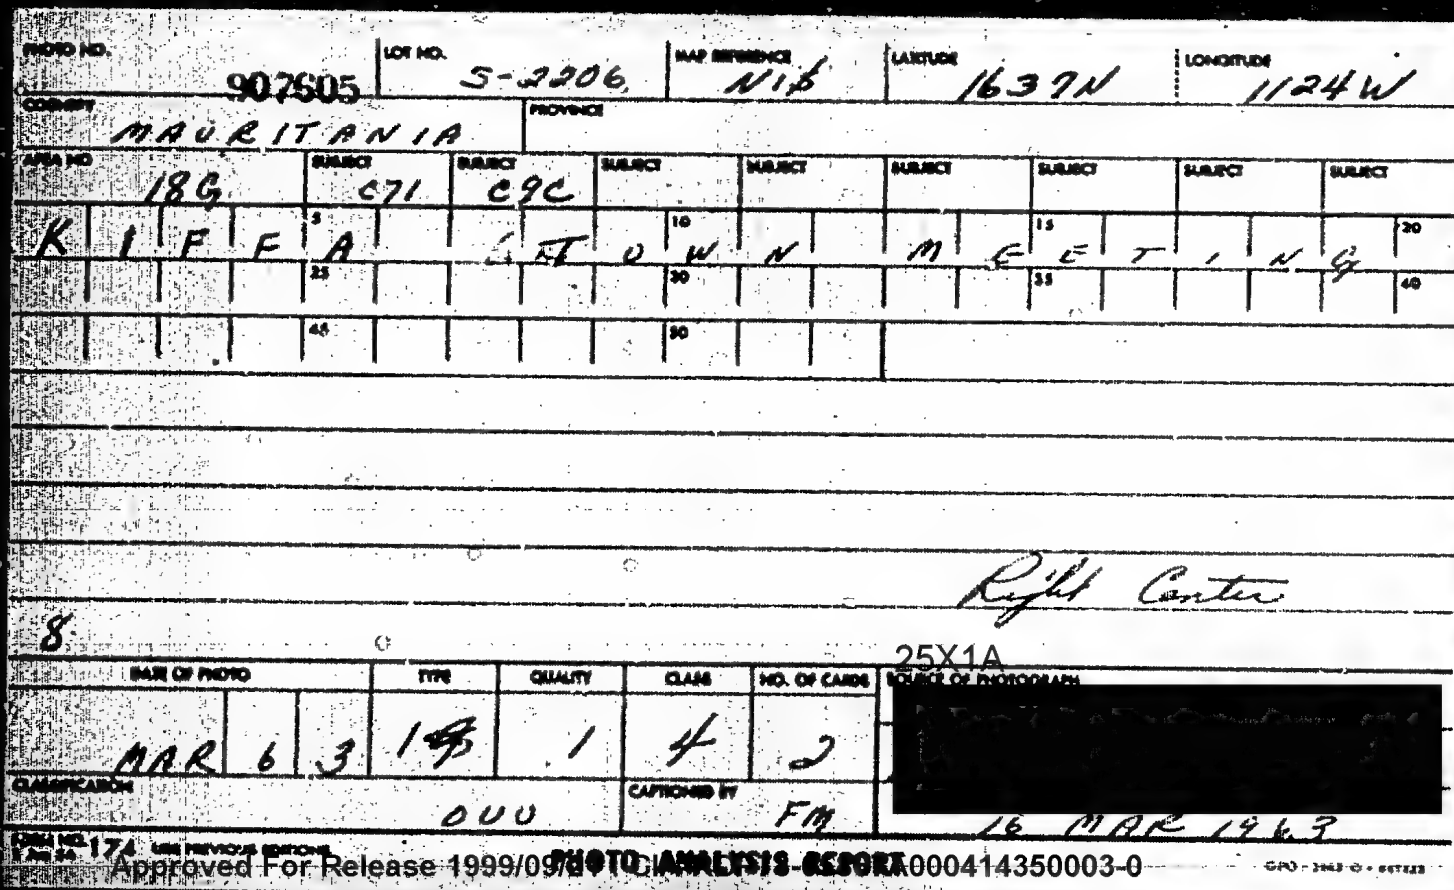 PHOTO NO. 907605 LOT NO. S-2206 MAP REFERENCE N16 LATITUDE 1637N LONGITUDE 1124W
COUNTRY MAURITANIA PROVINCE
AREA NO 18G SUBJECT C71 SUBJECT C9C SUBJECT SUBJECT SUBJECT SUBJECT SUBJECT SUBJECT
KIFFA TOWN MEETING 5 10 15 20
25 30 35 40
45 50
Right Center
8
25X1A
DATE OF PHOTO TYPE QUALITY CLASS NO. OF CARDS SOURCE OF PHOTOGRAPH
MAR 6 3 1 1 4 2
CLASSIFICATION OUU CAPTIONED BY FM 16 MAR 1963
FORM NO. 174 USE PREVIOUS EDITIONS PHOTO ANALYSIS REPORT
Approved For Release 1999/09/ 000414350003-0